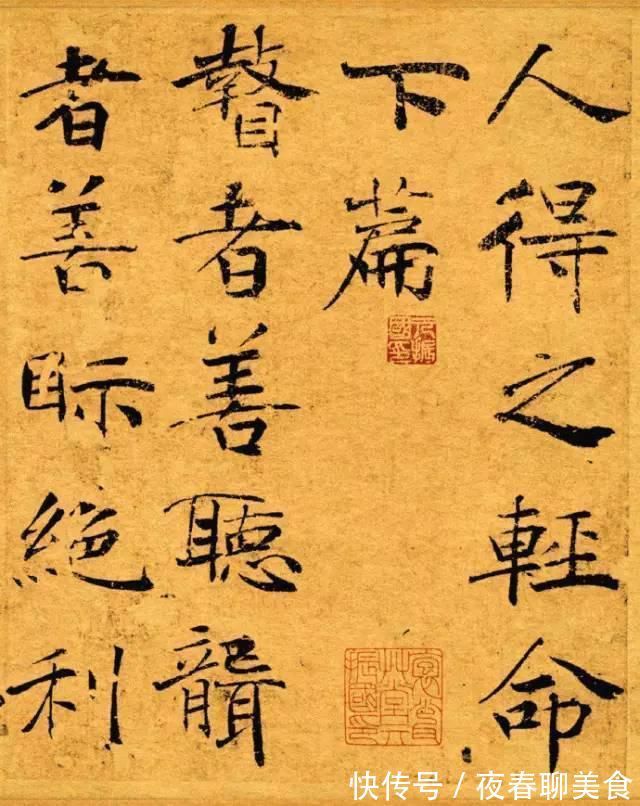 人得之輕命
下篇
瞽者善聽聾
者善眎絶利
快传号 / 夜春聊美食